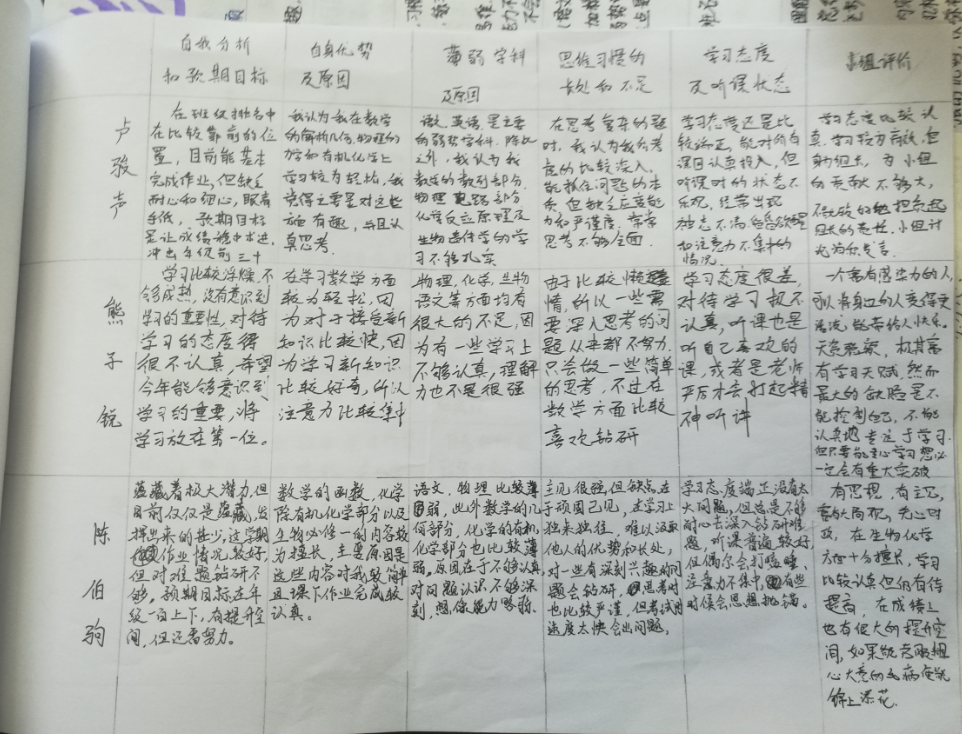 自我分析
和预期目标
自身优势
及原因
薄弱学科
及原因
思维习惯的
长处和不足
学习态度
及听课状态
小组评价
卢骏声
在班级排名中
在比较靠前的位
置，目前能基本
完成作业，但缺乏
耐心和细心，眼高
手低，预期目标
是让成绩稳中求进，
冲击年级前三十
我认为我在数学
的解析几何，物理的
力学和有机化学上
学习较为轻松，我
觉得主要是对这些
施有趣，并且认
真思考。
语文，英语，是主要
的弱势学科。除此
之外，我认为我
数学的数列部分，
物理电路部分
化学反应原理及
生物遗传学的学
习不够扎实
在思考复杂的题
时，我认为我的考
虑的比较深入，
能抓住问题的本
质，但缺乏反应能
力和严谨度，常常
思考不够全面．
学习态度还是比
较端正，能对所有
课目认真投入，但
听课时的状态不
乐观，经常出现
独态不满
和注意力不集中的
情况．
学习态度比较认
真，学习较为高效，但
为小组
的贡献不够大，
担负起
组长的责任，小组讨
论为积发言．
熊子锐
学习比较浮燥，不
够成熟，没有意识到
学习的重要性，对待
学习的态度得
很不认真，希望
今年能够意识到
学习的重要，将
学习放在第一位。
在学习数学方面
较为轻松，因
为对于接受新
知识比较快，因
为学习新知识
比较好奇，所以
注意力比较集中
物理，化学，生物
语文等方面均有
很大的不足，因
为有一些学习上
不够认真，理解
力也不是很强
由于比较懒惰
情，所以一些需
要深入思考的问
题从来都不努力，
只会做一些简单
的思考，不过在
数学方面比较
喜欢钻研
学习态度很差，
对待学习极不
认真，听课也是
听自己喜欢的
课，或者是老师
严厉才会打起精
神听讲
一个富有感染力的人
可以将身边的人变得更
活泼，能带给人快乐．
天资聪颖，极其富
有学习天赋，然而
最大的缺陷是不
能控制自己，不能
认真地专注于学习．
但只要能专心学习想必
一定会有重大突破
陈伯驹
蕴藏着极大潜力，但
目前仅仅是蕴藏，发
挥出来的甚少，这学期
作业情况较好，
但对难题钻研不
够，预期目标在年
级一百上下，有提升空
间，但还需努力。
数学的函数，化学
除有机化学部分以及
生物必修一的内容较
为擅长，主要原因是
这些内容对我较简单
且课下作业完成较
认真。
语文，物理比较薄
弱，此外数学的几
何部分，化学的有机
化学部分也比较薄
弱。原因在于不够认真，
对问题认识不够深
刻，想像能力略弱．
主见很强，但缺点在
于顽固己见，在学习上
独来独往，难以汲取
他人的优势和长处，
对一些有深刻兴趣的问
题会钻研，思考时
也比较严谨，但考试时
速度太快会出问题，
学习态度端正，没有太
大问题，但总是不够
耐心去深入钻研难
题，听课普遍较好，
但偶尔会打瞌睡、
注意力不集中，有些
时候会思想抛锚。
有思想，有主见，
有大局观，先心时
政，在生物化学
方面十分擅长，学习
比较认真但仍有待
提高，在成绩上
也有很大的提升空
间，如果能克服粗
心大意的毛病便能
锦上添花．